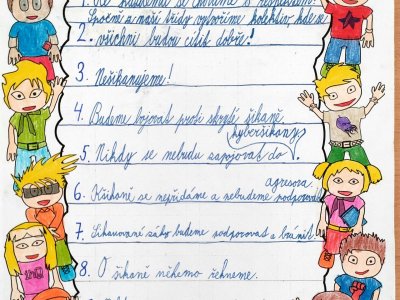 1. Ke každému se chováme s respektem.
Společně z naší třídy vytvoříme kolektiv, kde se
2. všichni budou cítit dobře!
3. Nešikanujeme!
4. Budeme bojovat proti skryté šikaně.
kyberšikany
5. Nikdy se nebudu zapojovat do .
agresora
6. K šikaně se nepřidáme a nebudeme podporovat
7. Šikanované žáky budeme podporovat a bránit.
8. O šikaně někomu řekneme.